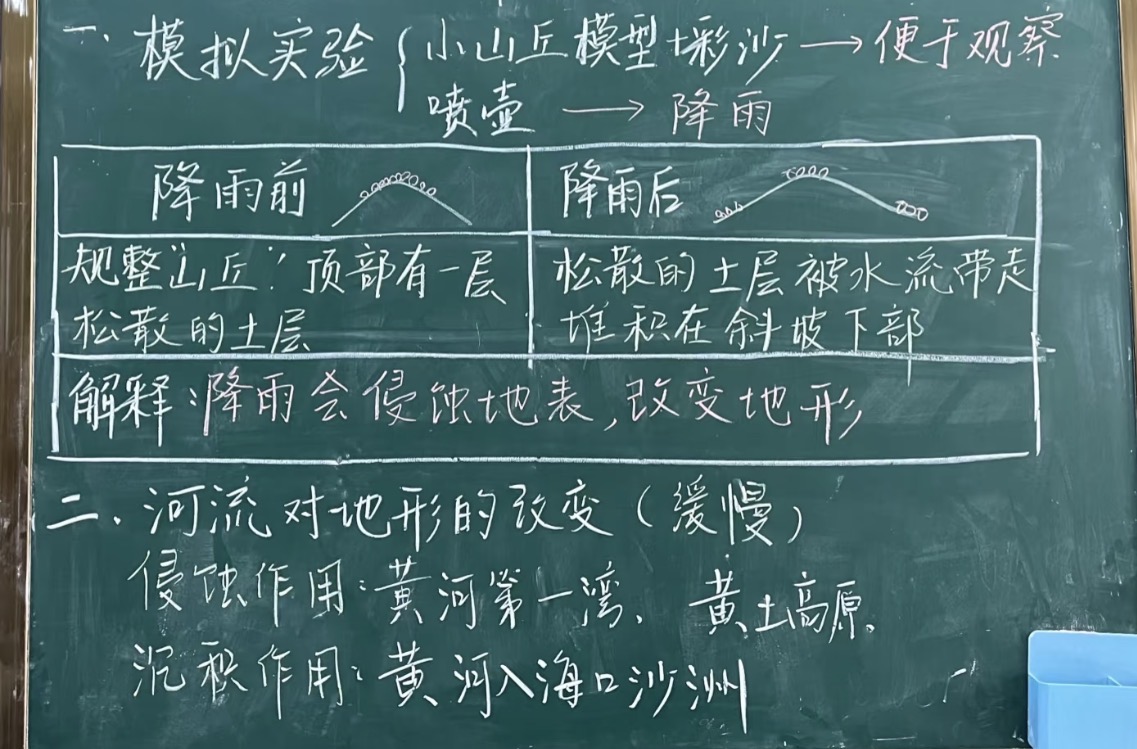 一. 模拟实验 { 小山丘模型+彩沙 → 便于观察
喷壶 → 降雨
降雨前
降雨后
规整"山丘":顶部有一层
松散的土层
松散的土层被水流带走
堆积在斜坡下部
解释:降雨会侵蚀地表,改变地形
二. 河流对地形的改变(缓慢)
侵蚀作用:黄河第一湾、黄土高原。
沉积作用:黄河入海口沙洲